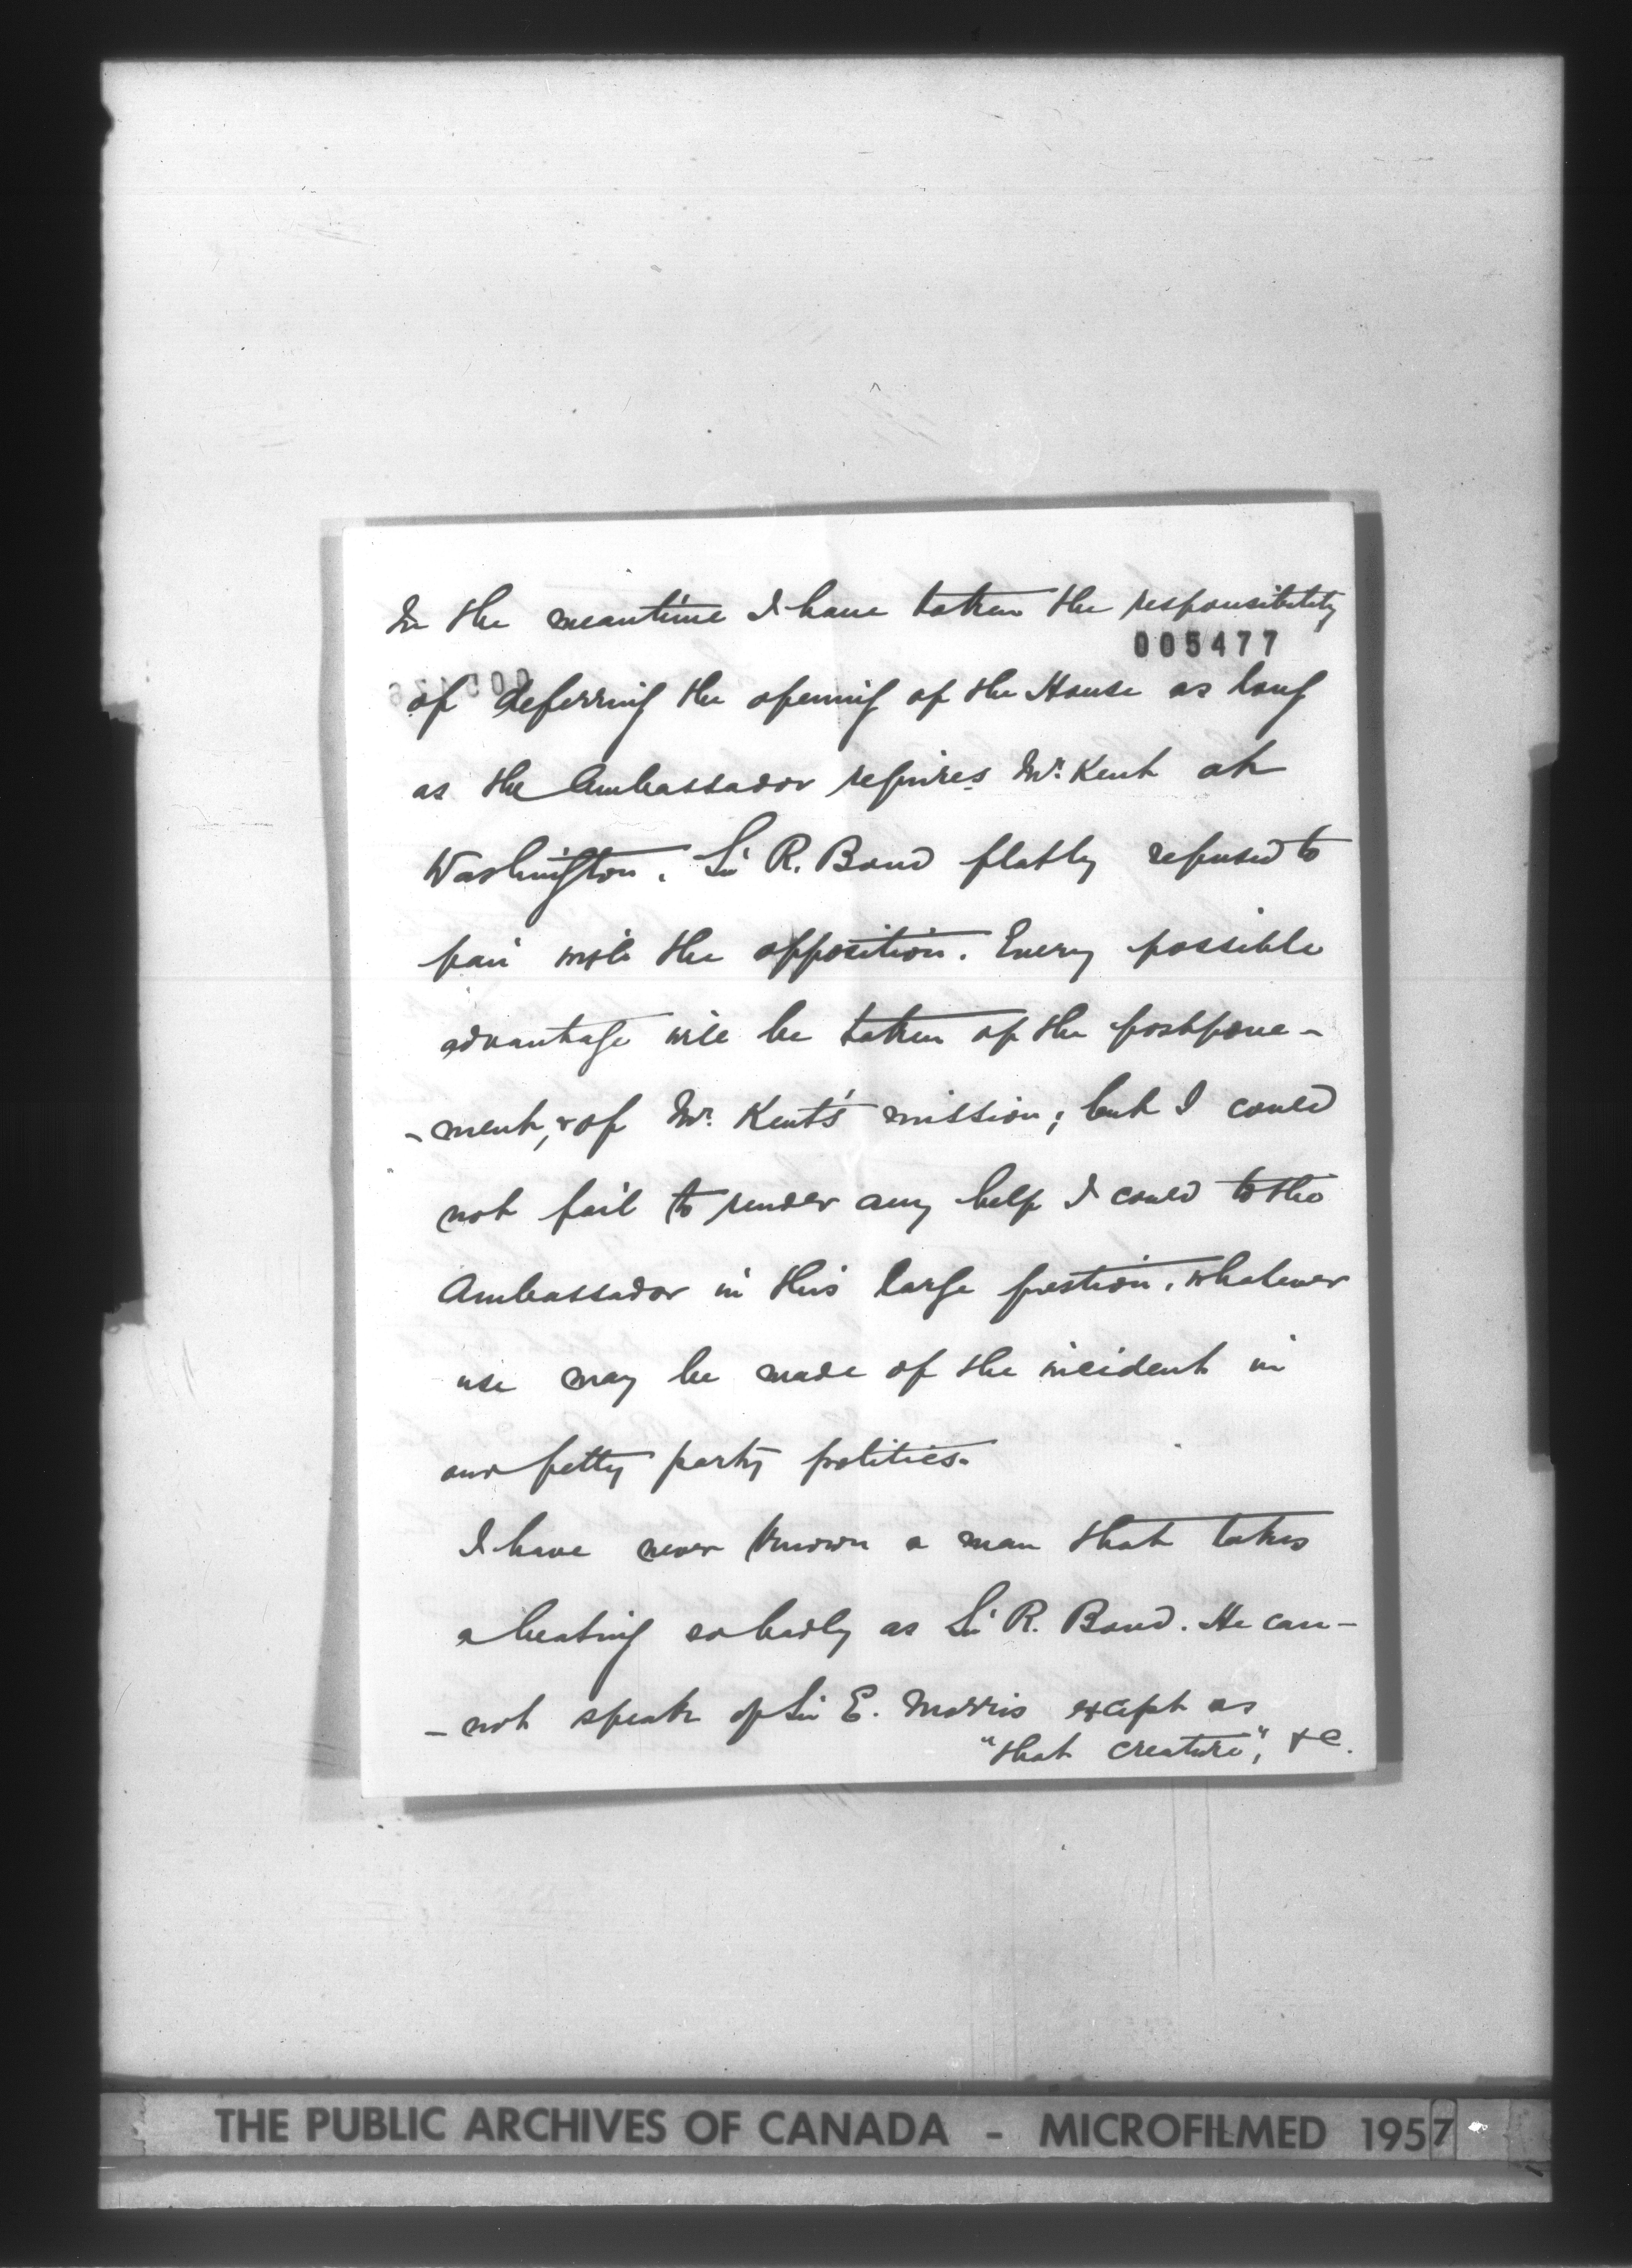 In the meantime I have taken the responsibility
005477
of deferring the opening of the House as long
as the Ambassador requires Mr. Kent at
Washington. Sir R. Bond flatly refused to
pair with the opposition. Every possible
advantage will be taken of the postpone-
-ment, & of Mr. Kent's mission; but I could
not fail to render any help I could to the
Ambassador in this large question, whatever
use may be made of the incident in
our petty party politics.
I have never known a man that takes
a beating so badly as Sir R. Bond. He can-
-not speak of Sir E. Morris except as
"that creature", &c.
THE PUBLIC ARCHIVES OF CANADA - MICROFILMED 1957